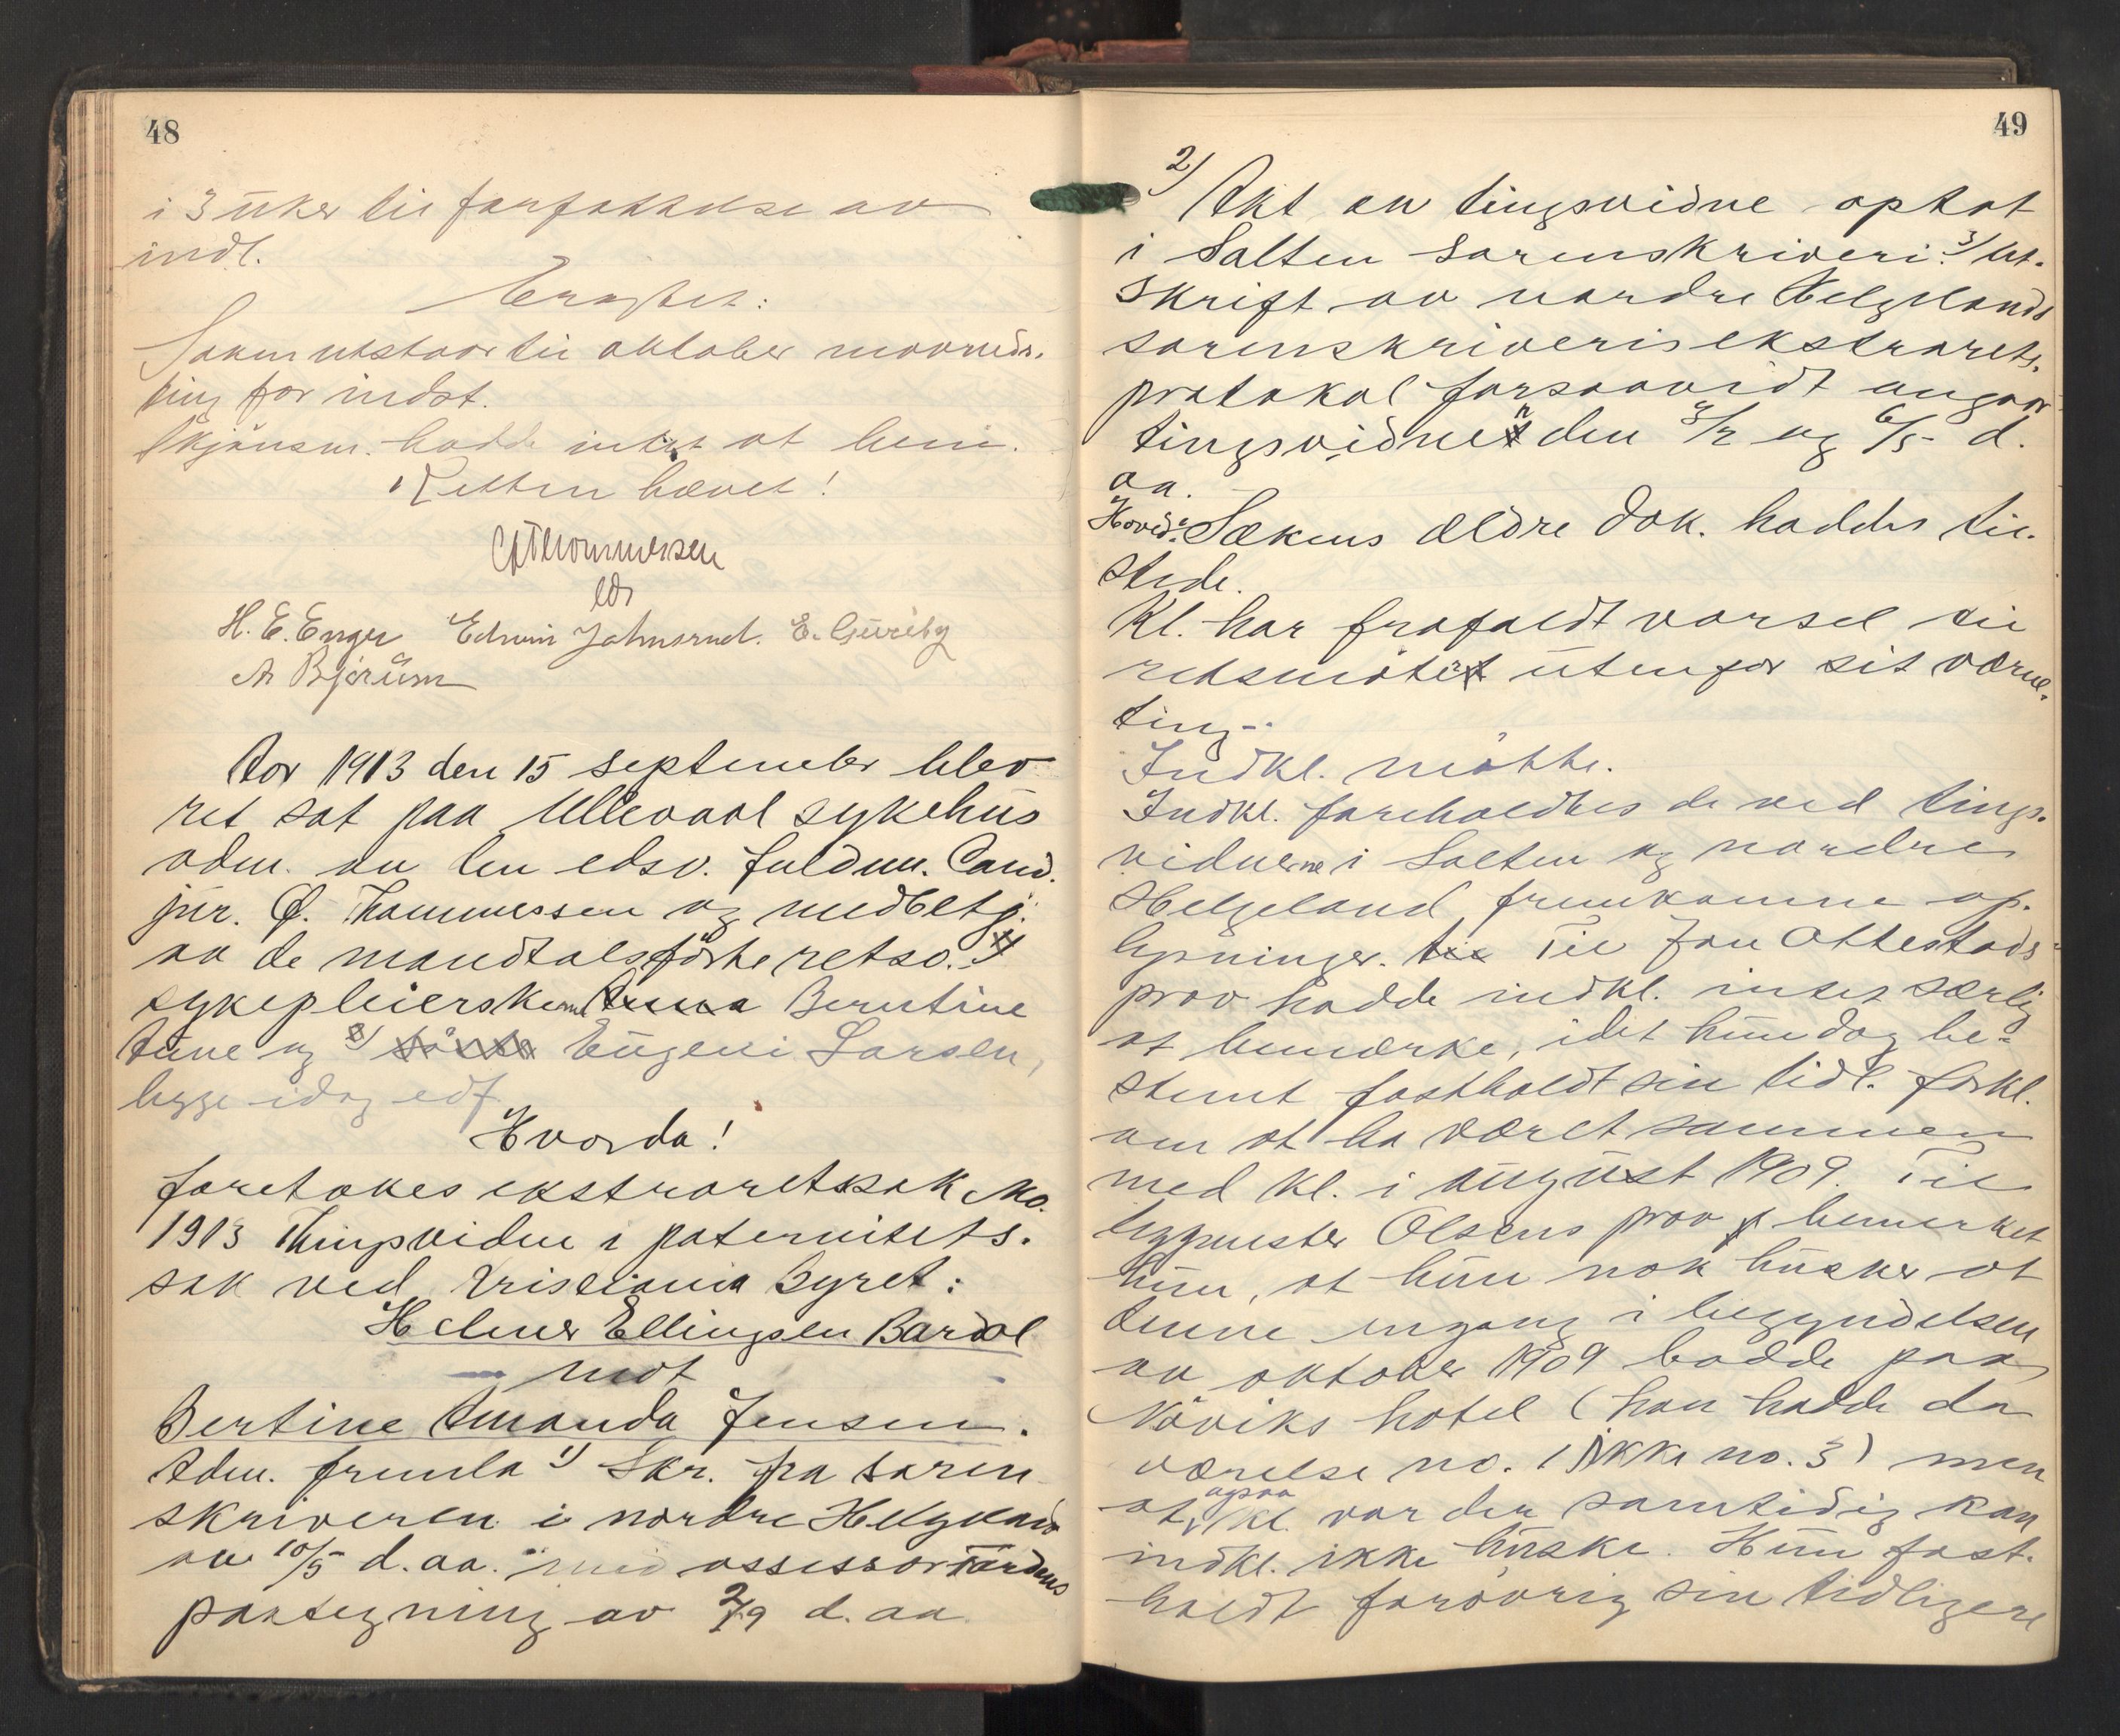 48
i 3 uker til forfattelse av
indl.
Eragtet:
Saken utstaar til oktober maaneds.
ting for indst.
Skjønsm. hadde intet at bem.
Retten hævet!
CThommessen
eds
H. E. Enger Edwin Johnsrud. E. Gureby
A Bjørum
Aar 1913 den 15 september blev
ret sat paa Ullevaal sykehus
adm. av den edsv. fuldm. Cand.
jur. Ø. Thommessen og medbetj.
av de mandtalsførte retsv. 1)
sykepleierskerne Anna Berntine
Aune og 2) Eugeni Larsen,
begge idag edf.
Hvorda!
foretokes ekstraretssak No.
1913 Thingsvidne i paternitets.
sak ved Kristiania Byret:
Helmer Ellingsen Bardal
mot
Bertine Amanda Jensen.
Adm. fremla 1) Skr. fra soren
skriveren i nordre Helgeland
av 10/5 d. aa. med assessor
paategning av 2/9 d. aa
49
2) Akt av tingsvidne optat
i Salten sorenskriveri. 3) Ut.
skrift av nordre Helgelands
sorenskriveris ekstrarets.
protokol forsaavidt angaar
tingsvidnet den og 6/5 d.
aa.
Hovd. Sakens ældre dok. haddes til.
stede.
Kl. har frafaldt varsel til
retsmøtet utenfor sit værne.
ting.
Indkl. møtte.
Indkl. foreholdtes de ved tings.
vidnerne i Salten og nordre
Helgeland fremkomne op.
lysninger. til Til Jon Ottestads
prov hadde indkl. intet særlig
at bemerke, idet hun dog be-
stemt fastholdt sin tidl. forkl.
om at ha været sammen
med kl. i august 1909. Til
bygmester Olsens prov bemerket
hun, at hun nok husker at
denne engang i begyndelsen
av oktober 1909 bodde paa
Nøviks hotel (han hadde da
værelse no. 1 ikke no. 3) men
at ogsaa kl. var der samtidig kan
indkl. ikke huske. Hun fast.
holdt forøvrig sin tidligere